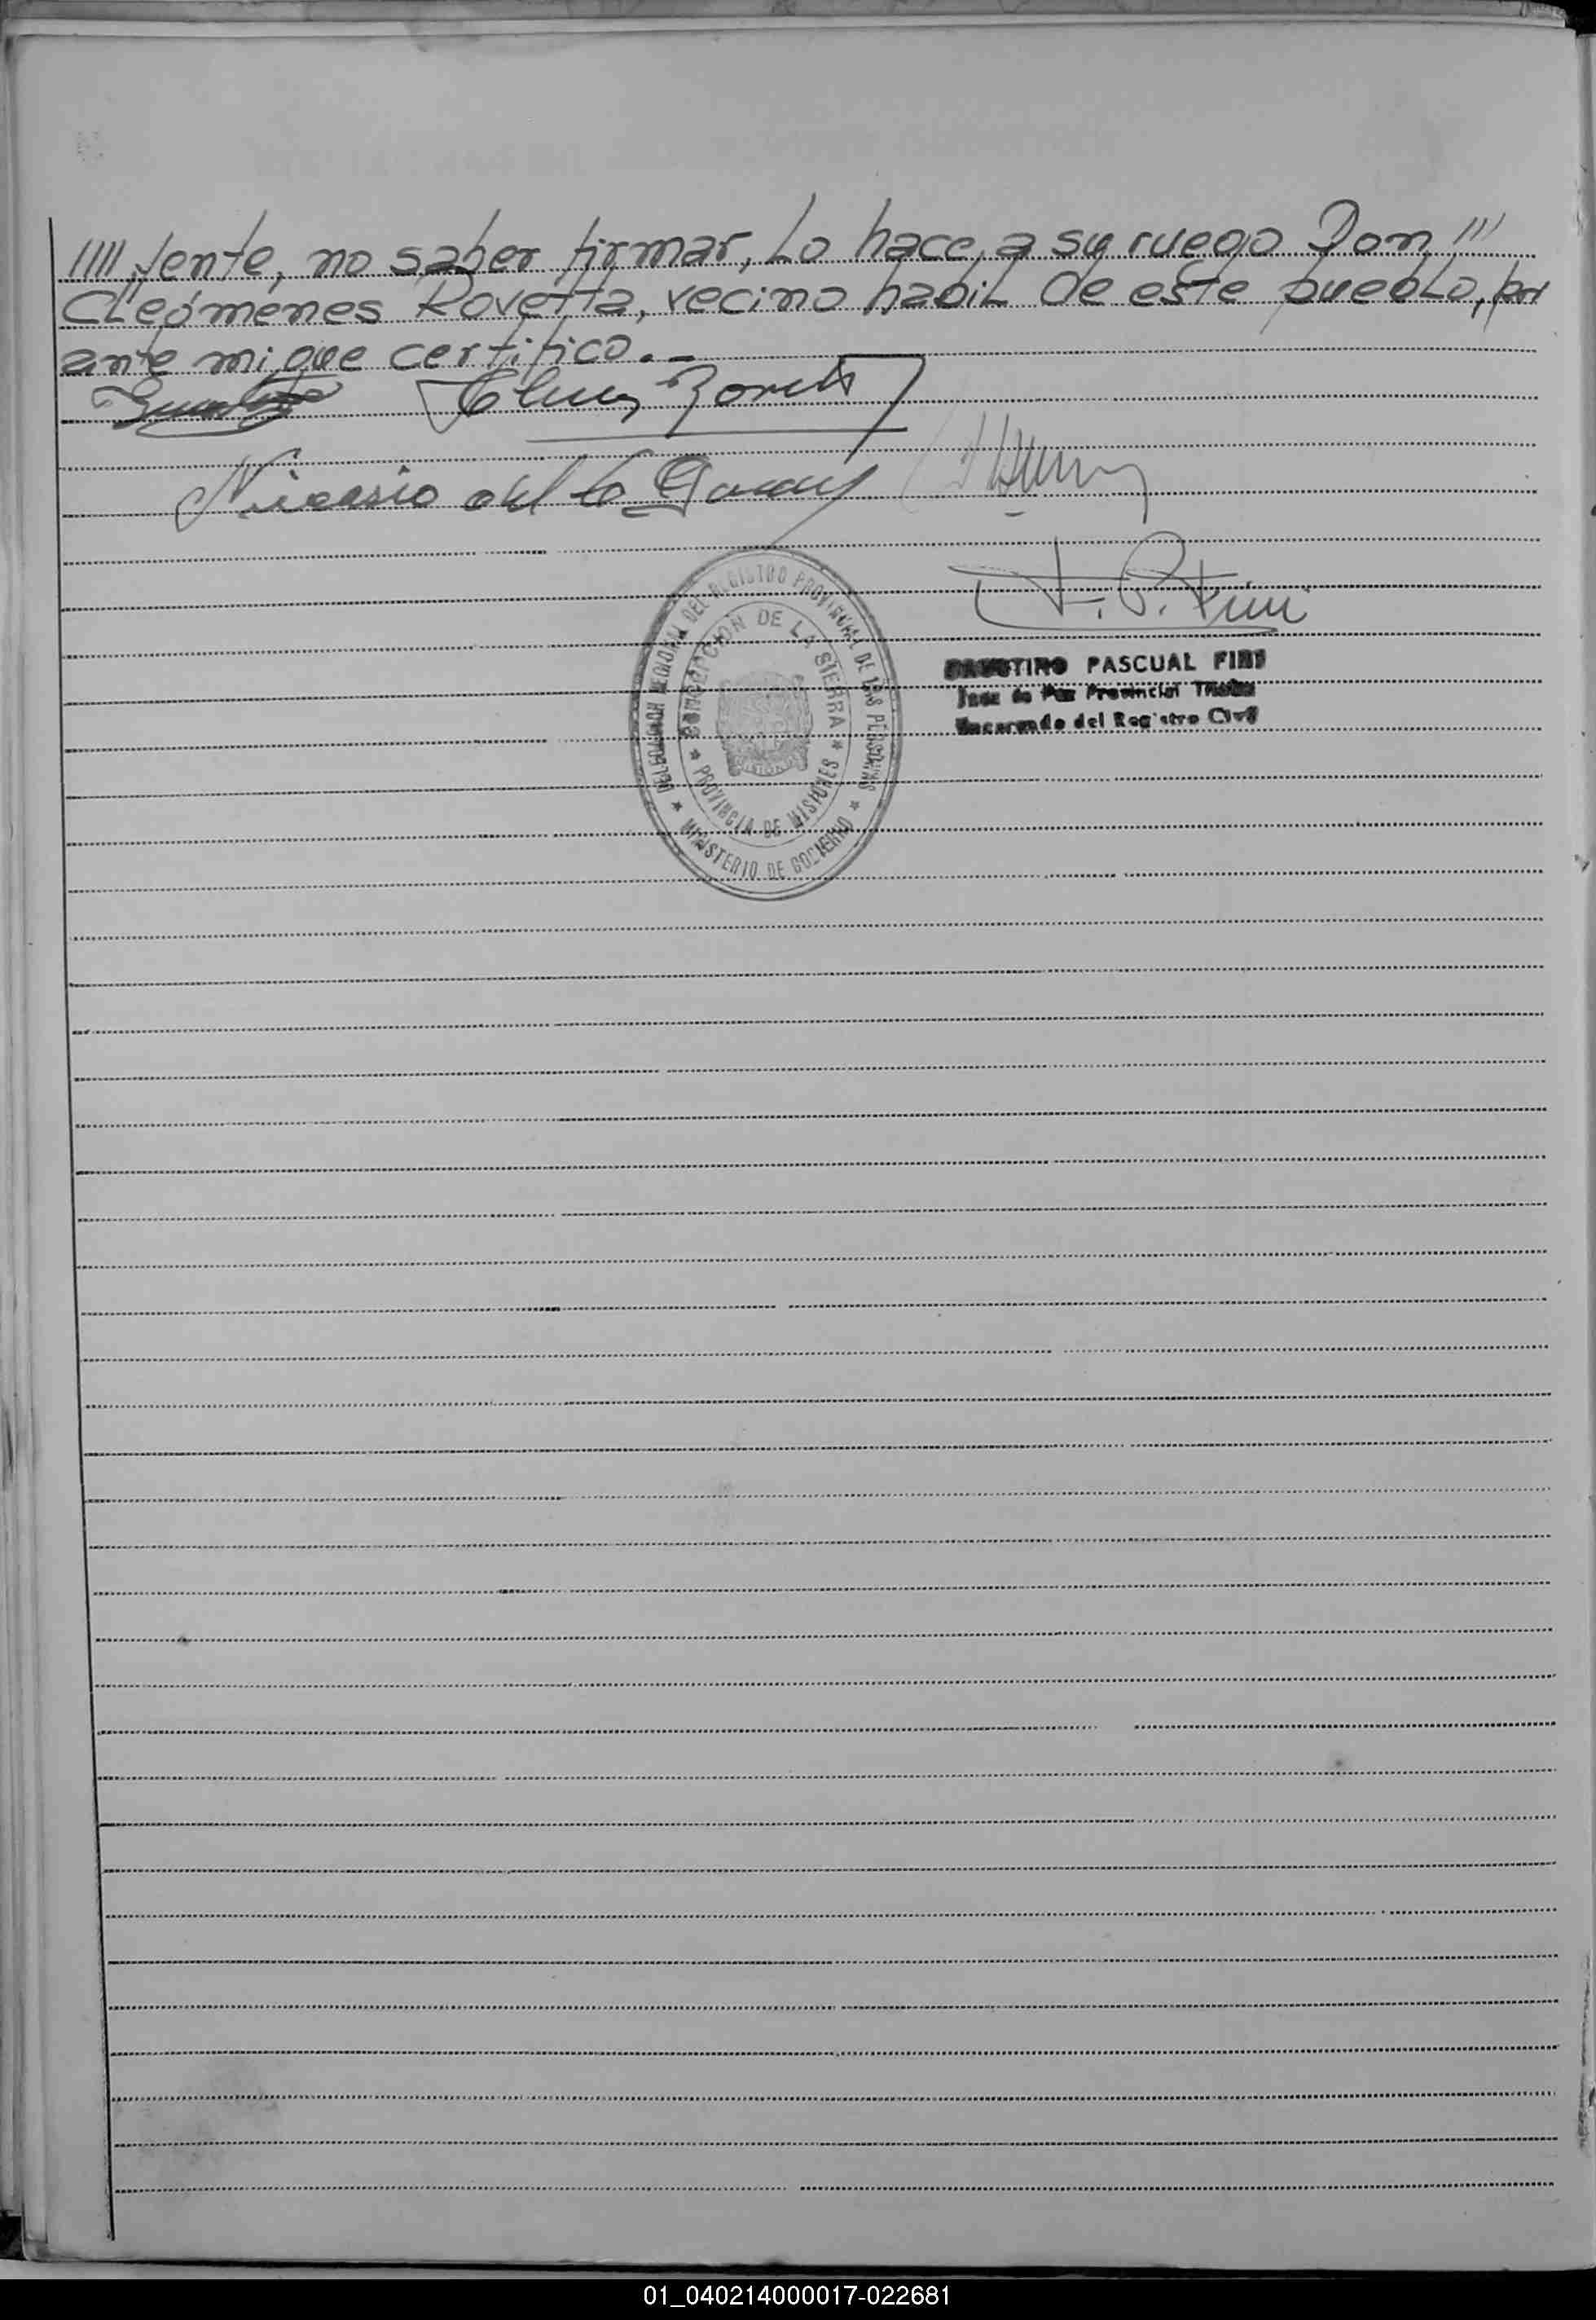 //// yente, no saber firmar, Lo hace, a su ruego Don ///
CLeómenes Rovetta, vecino habiL de este puebLo, por
ante mi que certifico.-
Nicasio
F. P. Fini
DELEGACION REGIONAL DEL REGISTRO PROVINCIAL DE LAS PERSONAS
CONCEPCION DE LA SIERRA
* PROVINCIA DE MISIONES *
* MINISTERIO DE GOBIERNO *
FAUSTINO PASCUAL FINI
Juez de Paz Provincial Titular
Encargado del Registro Civil
01_040214000017-022681